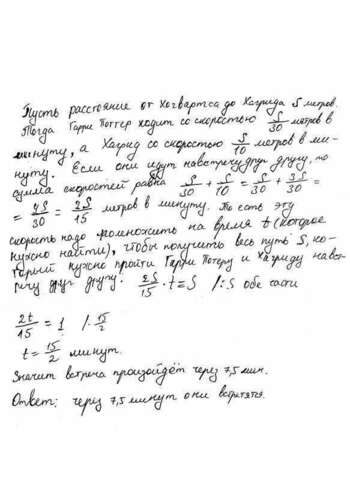 Пусть расстояние от Хогвартса до Хагрида S метров.
Тогда Гарри Поттер ходит со скоростью S/30 метров в
минуту, а Хагрид со скоростью S/10 метров в ми-
нуту. Если они идут навстречу друг другу, то
сумма скоростей равна S/30 + S/10 = S/30 + 3S/30 =
= 4S/30 = 2S/15 метров в минуту. То есть эту
скорость надо умножить на время t (которое
нужно найти), чтобы получить весь путь S, ко-
торый нужно пройти Гарри Потеру и Хагриду навст-
речу друг другу. 2S/15 · t = S /:S обе части
2t/15 = 1 /· 15/2
t = 15/2 минут.
Значит встреча произойдёт через 7,5 мин.
Ответ: через 7,5 минут они встретятся.